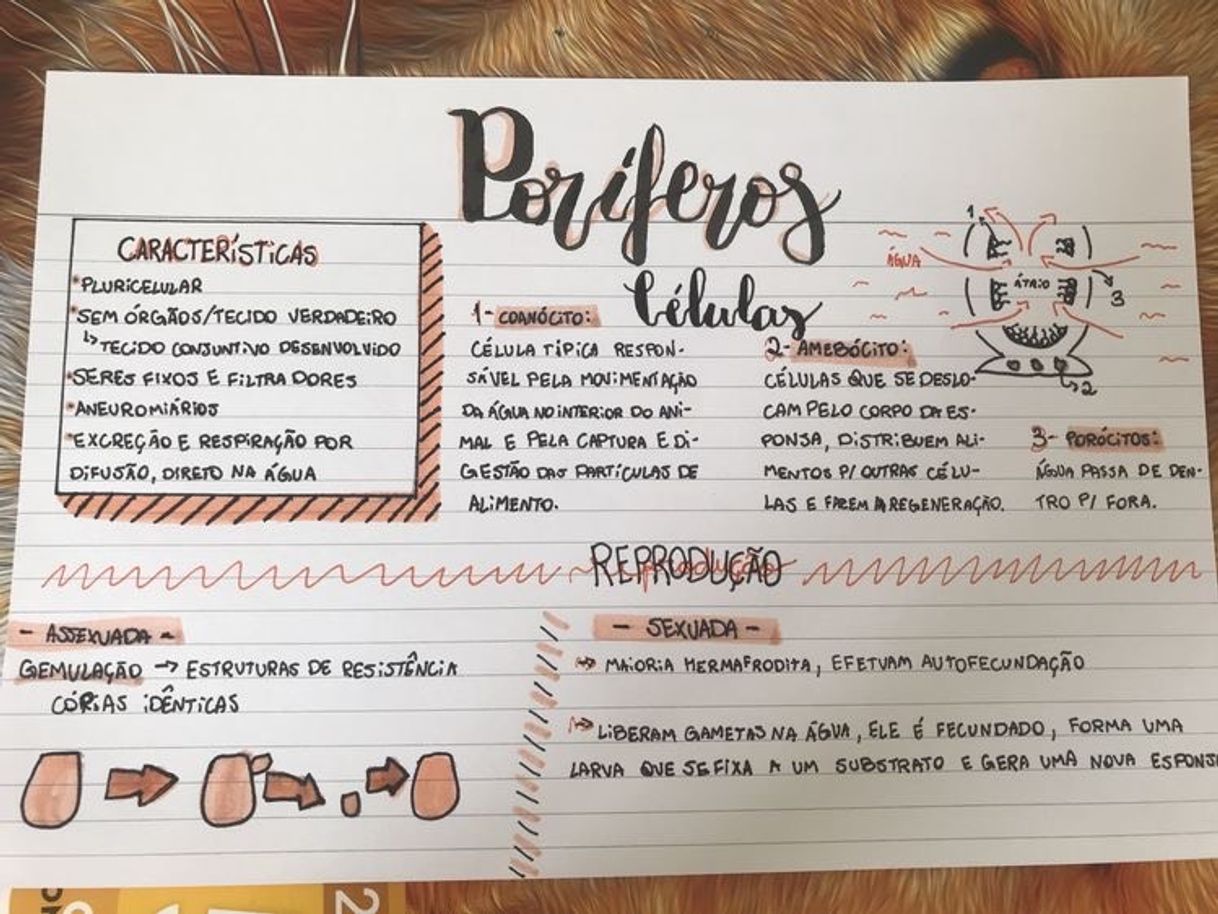 Poríferos
CARACTERÍSTICAS
*PLURICELULAR
*SEM ÓRGÃOS/TECIDO VERDADEIRO
↳TECIDO CONJUNTIVO DESENVOLVIDO
*SERES FIXOS E FILTRADORES
*ANEUROMIÁRIOS
*EXCREÇÃO E RESPIRAÇÃO POR
DIFUSÃO, DIRETO NA ÁGUA
Células
1- COANÓCITO:
CÉLULA TÍPICA RESPON-
SÁVEL PELA MOVIMENTAÇÃO
DA ÁGUA NO INTERIOR DO ANI-
MAL E PELA CAPTURA E DI-
GESTÃO DAS PARTÍCULAS DE
ALIMENTO.
2- AMEBÓCITO:
CÉLULAS QUE SE DESLO-
CAM PELO CORPO DA ES-
PONSA, DISTRIBUEM ALI-
MENTOS P/ OUTRAS CÉLU-
LAS E FAZEM A REGENERAÇÃO.
1
ÁGUA
ÁTRIO
3
2
3- PORÓCITOS:
ÁGUA PASSA DE DEN-
TRO P/ FORA.
REPRODUÇÃO
- ASSEXUADA -
GEMULAÇÃO → ESTRUTURAS DE RESISTÊNCIA
CÓPIAS IDÊNTICAS
- SEXUADA -
⇝ MAIORIA HERMAFRODITA, EFETUAM AUTOFECUNDAÇÃO
⇝ LIBERAM GAMETAS NA ÁGUA, ELE É FECUNDADO, FORMA UMA
LARVA QUE SE FIXA A UM SUBSTRATO E GERA UMA NOVA ESPONS
2